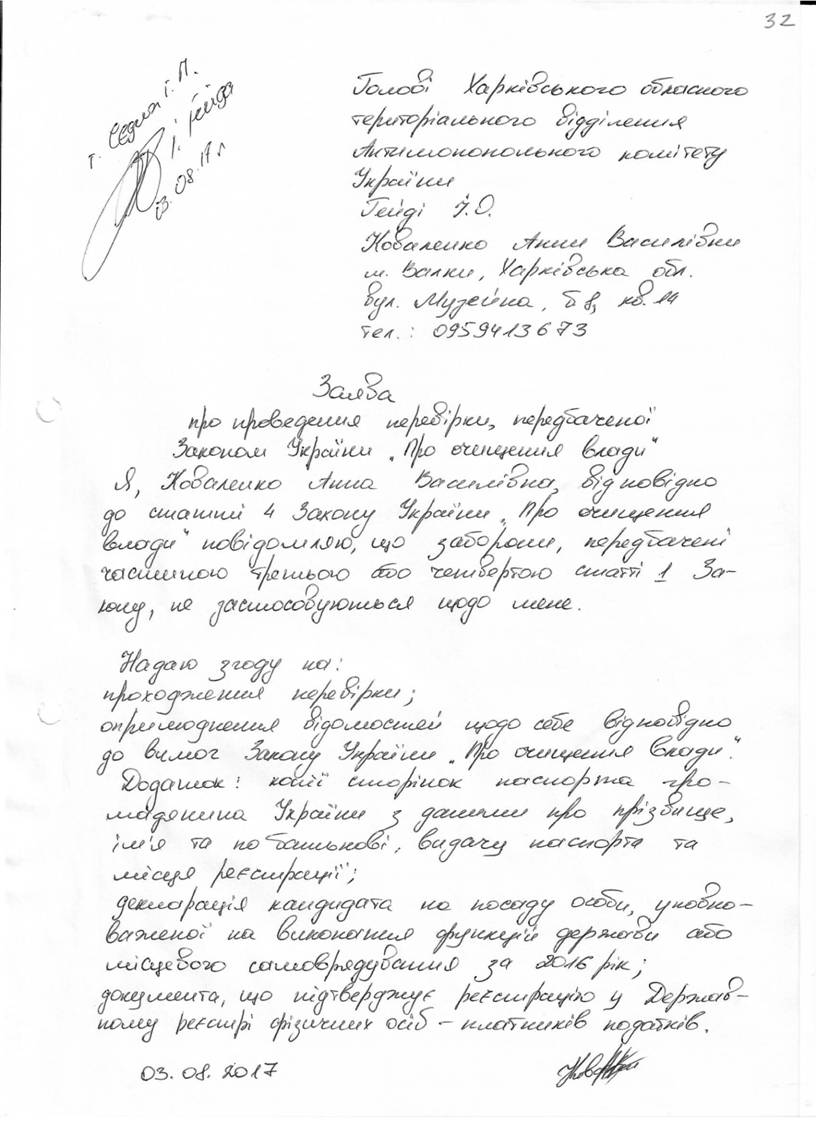 32
г. Седна Г. П.
І. Гейда
03.08.17 р
Голові Харківського обласного
територіального відділення
Антимонопольного комітету
України
Гейді І.О.
Коваленко Анни Василівни
м. Валки, Харківська обл.
вул. Музейна, б 8, кв. 14
тел.: 0959413673
Заява
про проведення перевірки, передбаченої
Законом України „Про очищення влади"
Я, Коваленко Анна Василівна, відповідно
до статті 4 Закону України „Про очищення
влади" повідомляю, що заборони, передбачені
частиною третьою або четвертою статті 1 За-
кону, не застосовуються щодо мене.
Надаю згоду на:
проходження перевірки;
оприлюднення відомостей щодо себе відповідно
до вимог Закону України „Про очищення влади".
Додаток: копії сторінок паспорта гро-
мадянина України з даними про прізвище,
ім'я та по батькові, видачу паспорта та
місця реєстрації;
декларація кандидата на посаду особи, уповно-
важеної на виконання функцій держави або
місцевого самоврядування за 2016 рік;
документа, що підтверджує реєстрацію у Держав-
ному реєстрі фізичних осіб – платників податків.
03.08.2017